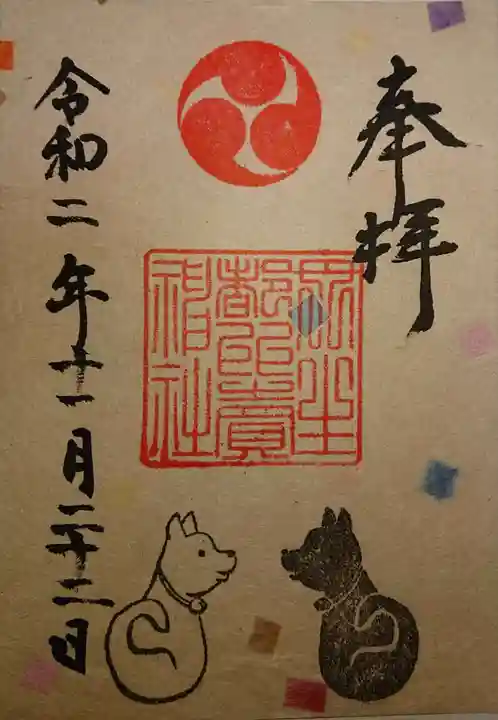 奉拝
丹生
都比賣
神社
令和二年十一月二十二日